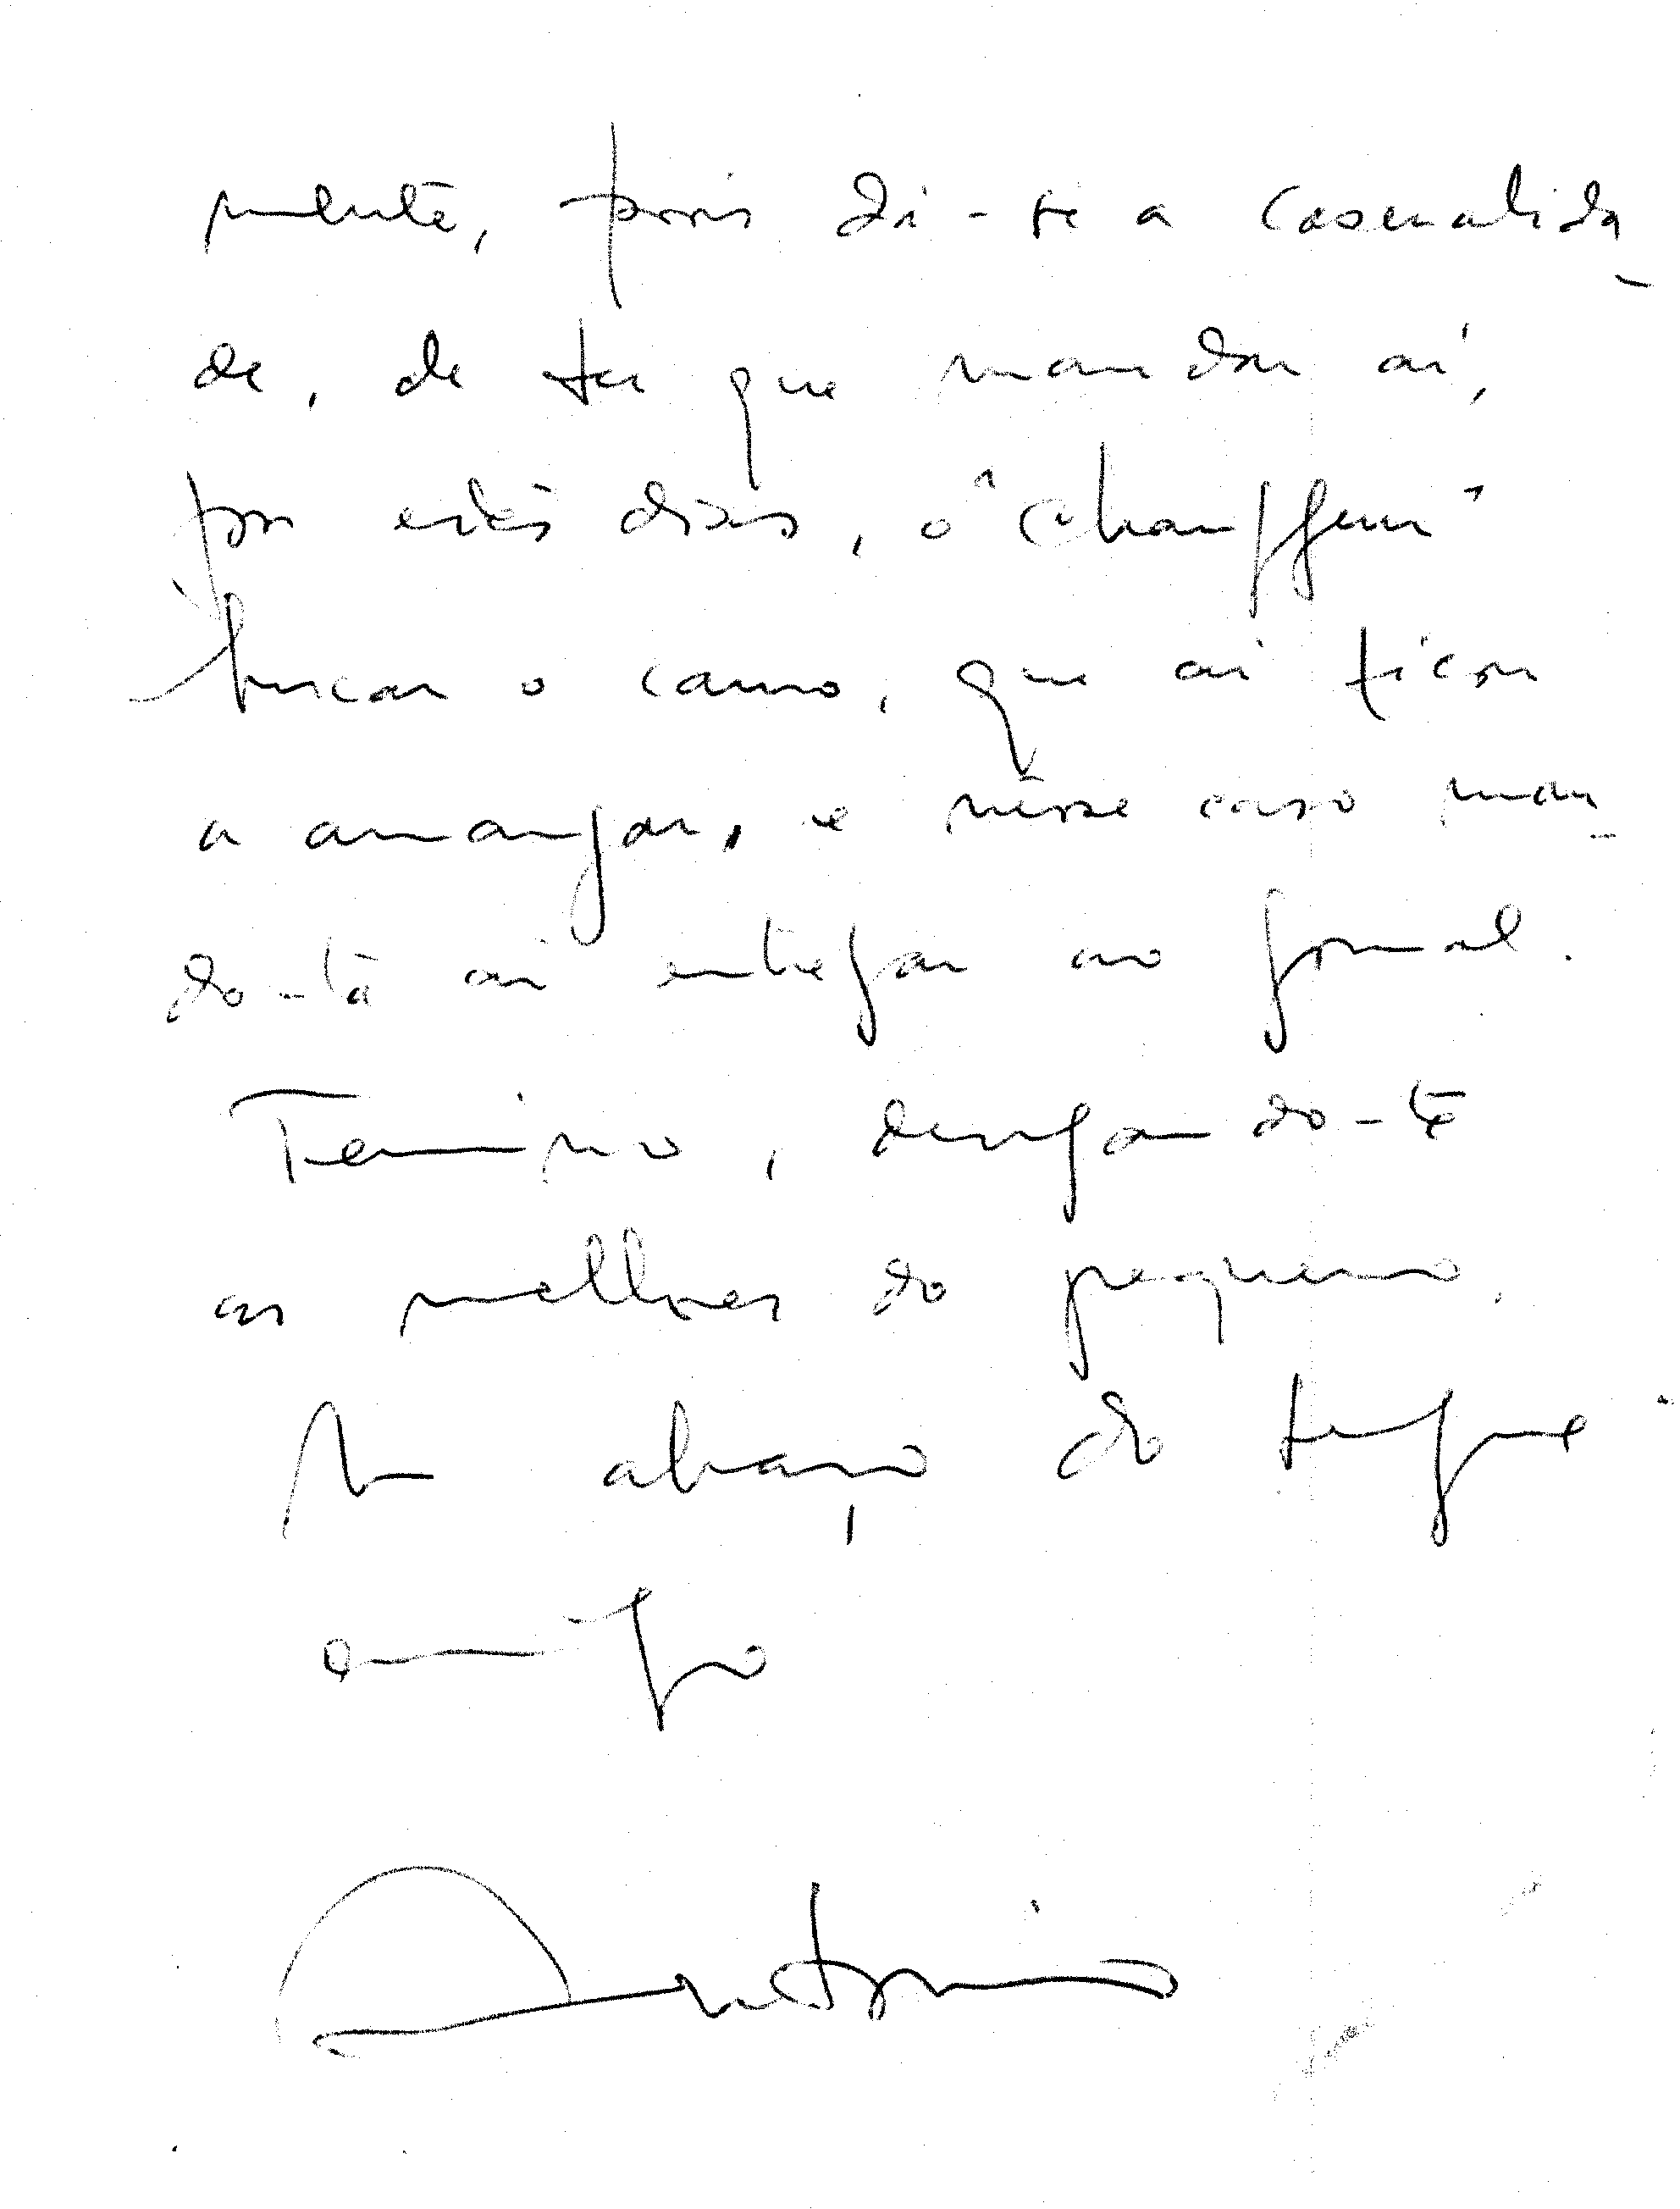 mente, pois dá-se a casualida-
de, de ter que mandar aí,
por estes dias, o "chauffeur"
buscar o carro, que aí ficou
a arranjar, e nêsse caso man-
do-ta aí entregar ao jornal.
Termino, desejando-te
as melhoras do pequeno.
Um abraço do sempre
amigo
António